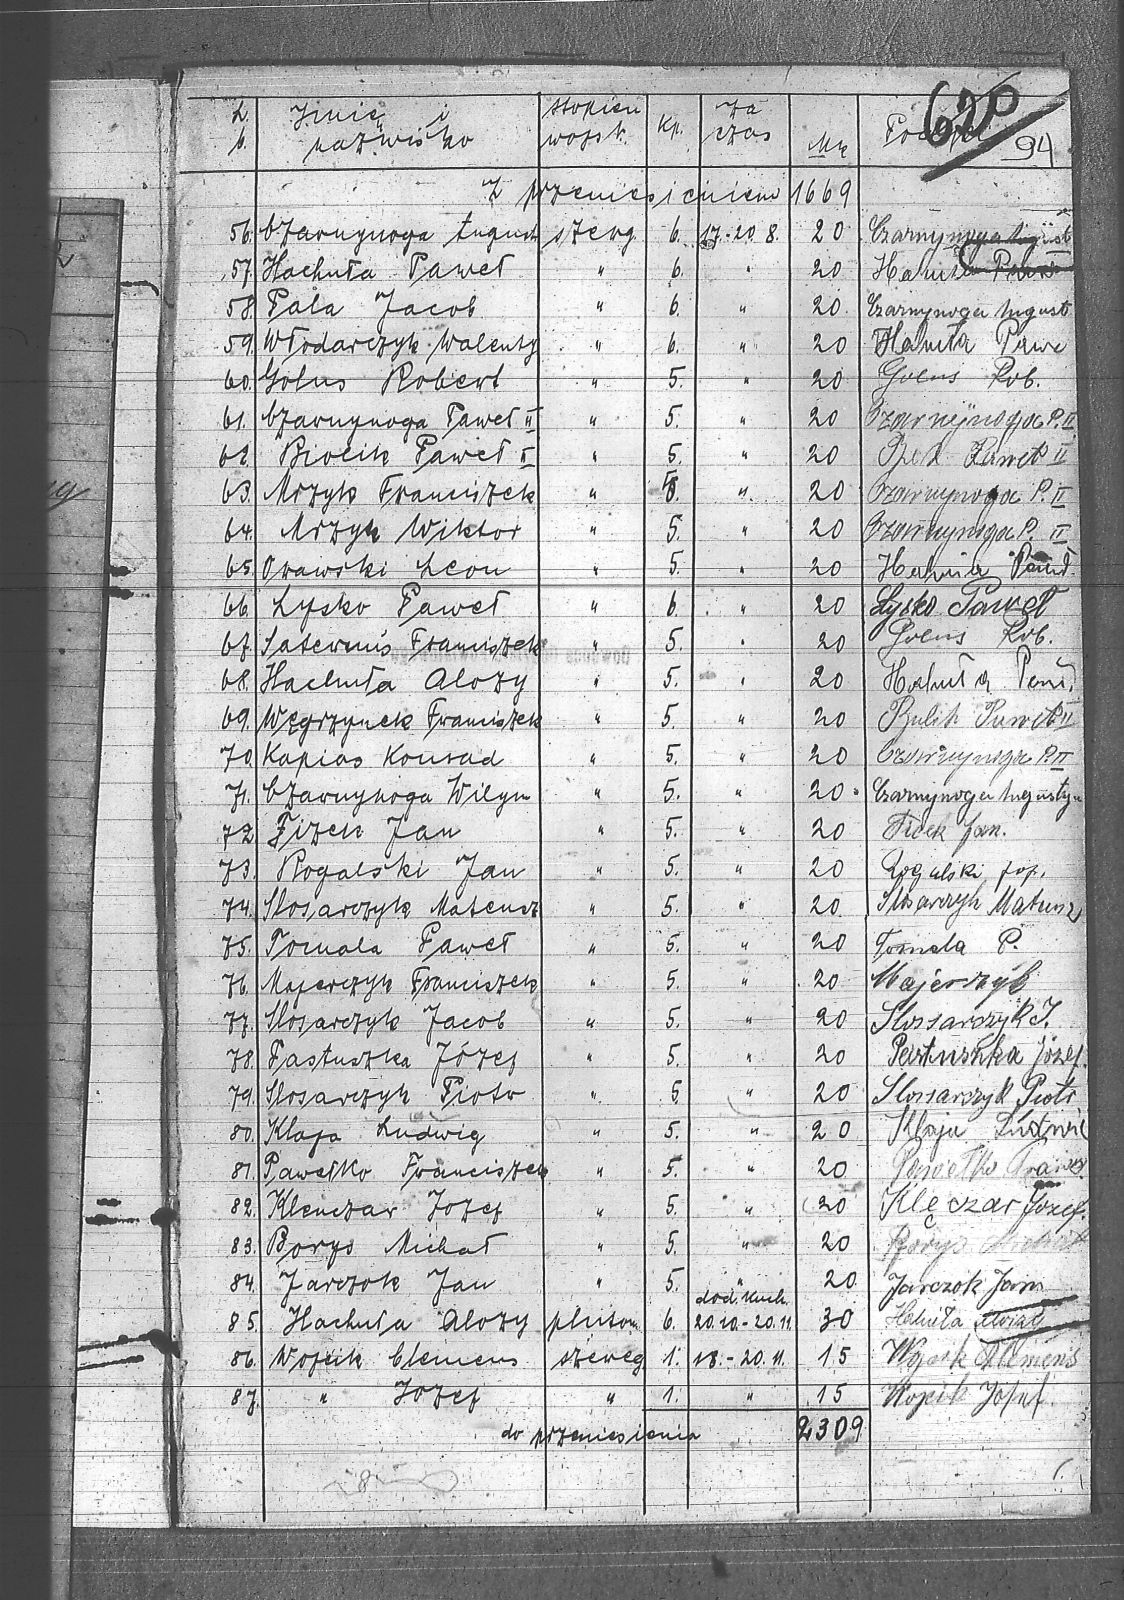 620
94
L. Imię i stopień Kp. Za Mk Podpis
b. nazwisko wojsk. czas
Z przeniesieniem 1669
56. Czarnynoga August szereg 6. 17.-20.8. 20 Czarnynoga August
57. Hachuła Paweł " 6. " 20 Hahuła
58. Pala Jacob " 6. " 20. Czarnynoga August
59. Włodarczyk Walenty " 6. " 20 Hahuła Pawe
60. Golus Robert " 5. " 20 Golus Rob.
61. Czarnynoga Paweł II " 5. " 20 Czarnynoga P. II
62. Biolik Paweł II " 5. " 20 Paweł II
63. Mrzyk Franciszek " 5. " 20 Czarnynoga P. II
64. Mrzyk Wiktor " 5. " 20 Czarnynoga P. II
65. Orawski Leon " 5. " 20 Hahuła
66. Łysko Paweł " 6. " 20 Łysko Paweł
67. Saternus Franciszek " 5. " 20 Golus Rob.
68. Hachuła Alozy " 5. " 20 Hahuła
69. Węgrzynek Franciszek " 5. " 20 Paweł II
70. Kapias Konrad " 5. " 20 Czarnynoga P. II
71. Czarnynoga Wilym " 5. " 20 Czarnynoga Augustyn
72. Fizek Jan " 5. " 20 Ficek Jan.
73. Rogalski Jan " 5. " 20 Rogalski
74. Slosarczyk Mateusz " 5. " 20 Slosarczyk Mateusz
75. Tomala Paweł " 5. " 20 Tomala P.
76. Majerczyk Franciszek " 5. " 20 Majerczyk
77. Slosarczyk Jacob " 5. " 20 Slossarczyk J.
78. Pastuszka Józef " 5. " 20 Pastushka Józef.
79. Slosarczyk Piotr " 5. " 20 Slossarczyk Piotr
80. Klaja Ludwig " 5. " 20 Klaja
81. Pawełko Franciszek " 5. " 20 Pawełko
82. Klenczar Jozef " 5. " 20 Klęczar Józef.
83. Borys Michał " 5. " 20 Borys
84. Jarczok Jan " 5. " 20 Jarczok Jan
dod. kuch.
85. Hachuła Alozy pluton. 6. 20.10.-20.11. 30 Hahuła
86. Wojcik Clemens szereg 1. 18.-20.11. 15 Klemens
87. " Jozef " 1. " 15 Wojcik Józef.
do przeniesienia 2309